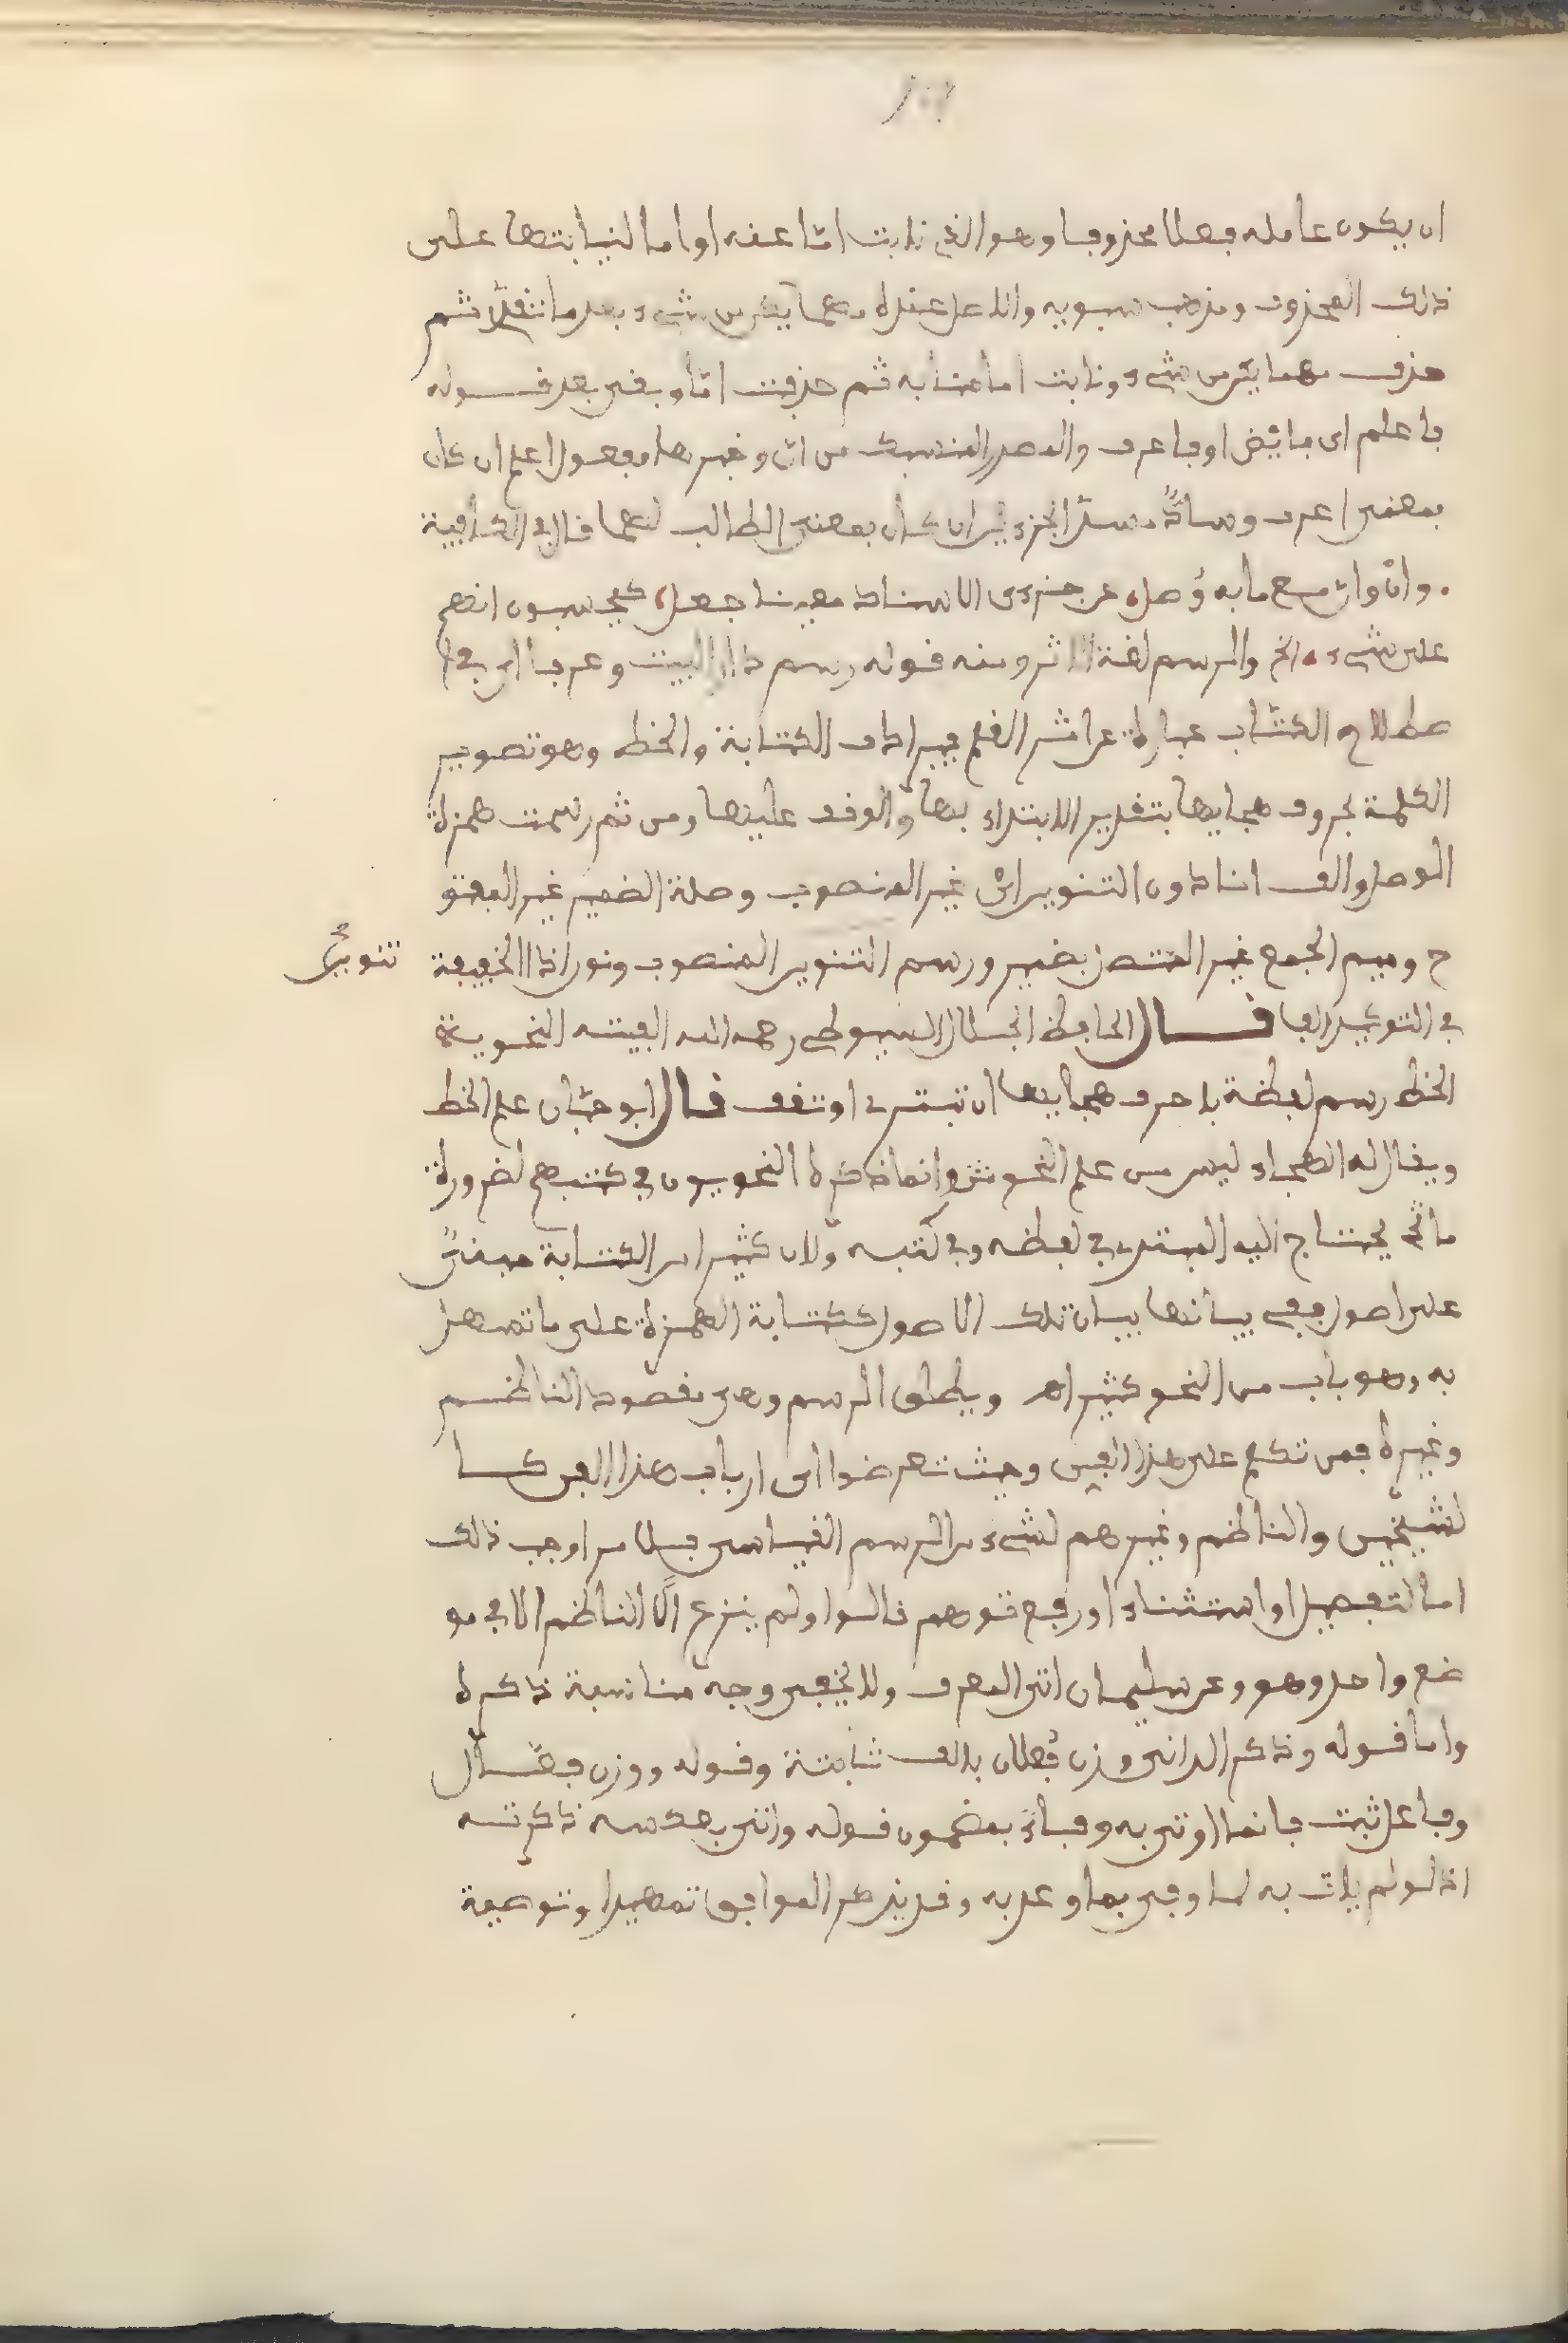 ان يكون عامله فعلا محذوفا وهو الذي نابت امّا عنه او امّا لنيابتها على
ذلك المحذوف ومذهب سيبويه والاصل عنده مهما يكن من شيء بعد ما تقدّم ثم
حذف مهما يكن من شيء ونابت امّا منابه ثم حذفت امّا وبقي بعد قوله
فاعلم اي فايقن او فاعرف والمصدر المنسبك من انّ وخبرها مفعول اعلم ان كان
بمعنى اعرف وسادٌّ مسدّ الجزءين ان كان بمعنى الطالب لهما قال في الكافية
وانّ وان مع ما به وُصل عن جزءي الاسناد مغنيا جعل كيحسبون انهم
على شيء الخ والرسم لغة الاثر ومنه قوله رسم دار البيت وعرفا اي في ا
صطلاح الكتّاب عبارة عن اثر القلم فيرادف الكتابة والخط وهو تصوير
الكلمة بحروف هجايها بتقدير الابتداء بها والوقف عليها ومن ثم رسمت همزة
الوصل والف انا دون التنوين غير المنصوب وصلة الضمير غير المفتو
ح وميم الجمع غير المتصل بضمير ورسم التنوين المنصوب ونون اذا الخفيفة
تنوين
في التوكيد الفا قال الحافظ الجلال السيوطي رحمه الله الفيته النحوية
الخط رسم لفظة باحرف هجايها ان تبتدي او تقف قال ابو حيّان علم الخط
ويقال له الهجاء ليس من علم النحو وانما ذكره النحويون في كتبهم لضرورة
ما يحتاج اليه المبتدي في لفظه وفي كتبه ولان كثيرا من الكتابة مبنيٌّ
على اصول ففي بيانها بيان تلك الاصول ككتابة الهمزة على ما تسهل
به وهو باب من النحو كثير اهـ ويطلق الرسم وهي مقصود الناظم
وغيره فمن تكلم على هذا الفن وحيث تعرضوا اي ارباب هذا الفن كا
لشيخين والناظم وغيرهم لشيء من الرسم القياسي فلا من اوجب ذلك
اما لتفصيل او استثناء او رفع توهم قالوا ولم ينزع الّا الناظم الا في مو
ضع واحد وهو وعن سليمان اتى المعرف ولا يخفى وجه مناسبة ذكره
واما قوله وذكر الداني وزن فُعلان بالف ثابتة وقوله ووزن فعّال
وفاعل ثبت فانما اوتي به وفاءً بمضمون قوله واتى بعكسه ذكرته
اذ لو لم يات به لما وفى بما وعد به وقد يذكر الموافق تمهيدا وتوصية